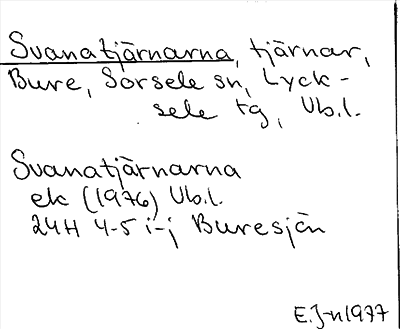 Svanatjärnarna, tjärnar,
Bure, Sorsele sn, Lyck-
sele tg, Vb.l.
Svanatjärnarna
ek (1976) Vb.l.
24H 4-5 i-j Buresjön
E.J-n 1977